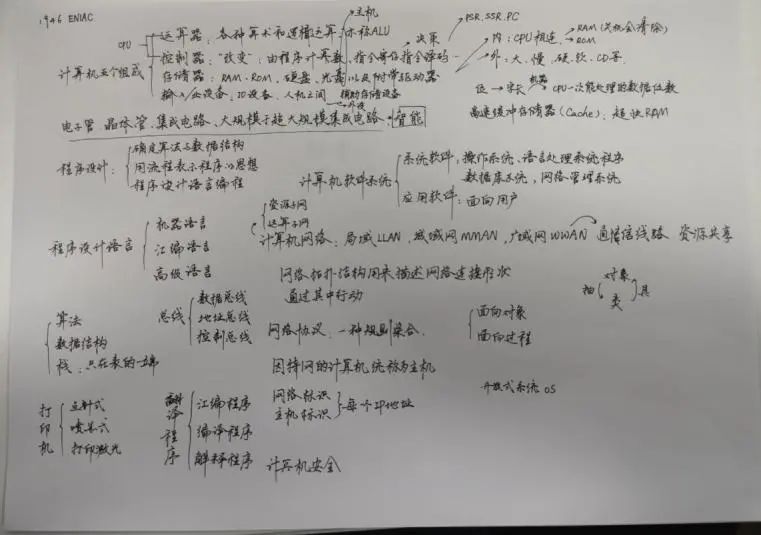 1946 ENIAC
主机
CPU 运算器：各种算术和逻辑运算：亦称ALU
决策
PSR.SSR.PC
控制器："改变"：由程序计算数，指令寄存指令译码
内：CPU相连 RAM(关机会清除)
ROM
计算机五个组成
存储器：RAM、ROM、硬盘、光盘以及附带驱动器
外：大、慢、硬、软、CD等
输入/出设备：IO设备、人机之间
辅助存储设备
外设
位 字长 机器 CPU一次能处理的数据位数
高速缓冲存储器(Cache)、超快RAM
电子管、晶体管、集成电路、大规模于超大规模集成电路、智能
程序设计：
确定算法与数据结构
用流程表示程序以思想
程序设计语言编程
计算机软件系统
系统软件：操作系统、语言处理系统程序
数据库系统，网络管理系统
应用软件：面向用户
程序设计语言
机器语言
汇编语言
高级语言
资源子网
运算子网
计算机网络：局域LLAN，城域网MMAN，广域网WWAN 通信线路 资源共享
网络拓扑结构用来描述网络连接形状
通过其中行动
对象
抽 类 具
算法
数据结构
栈：只在表的一端
总线
数据总线
地址总线
控制总线
网络协议、一种规则集合.
面向对象
面向过程
因特网的计算机统称为主机
开放式系统 OS
打印机
点针式
喷墨式
打印激光
翻译程序
汇编程序
编译程序
解释程序
网络标识
主机标识
每个IP地址
计算机安全